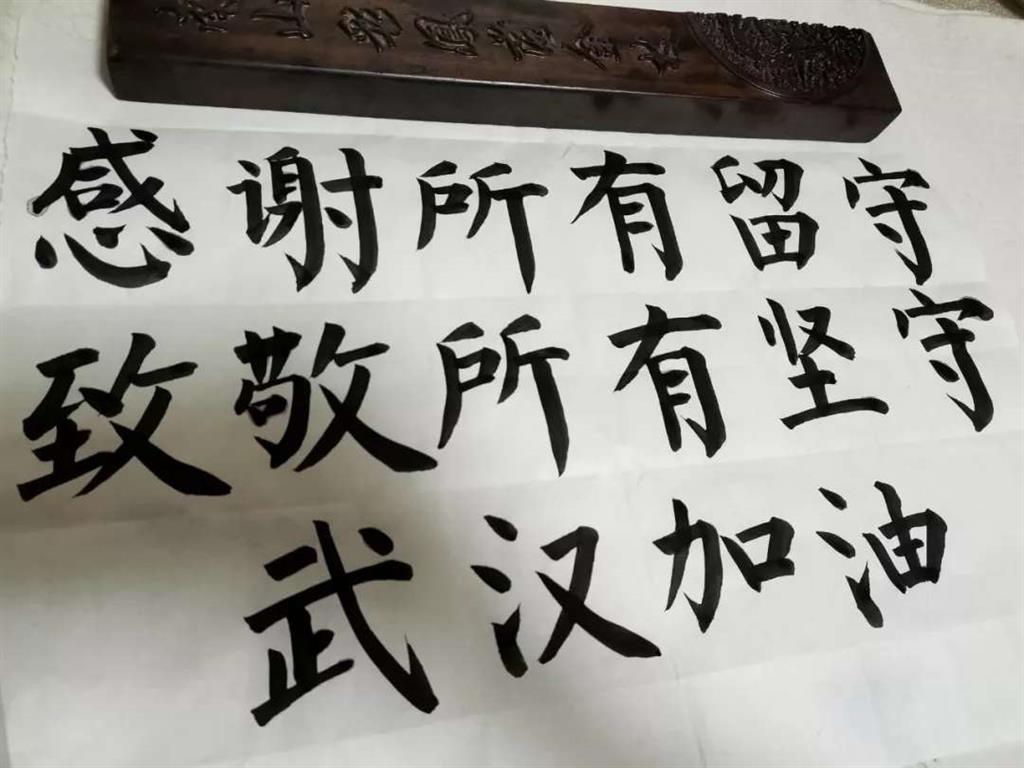 感谢所有留守
致敬所有坚守
武汉加油